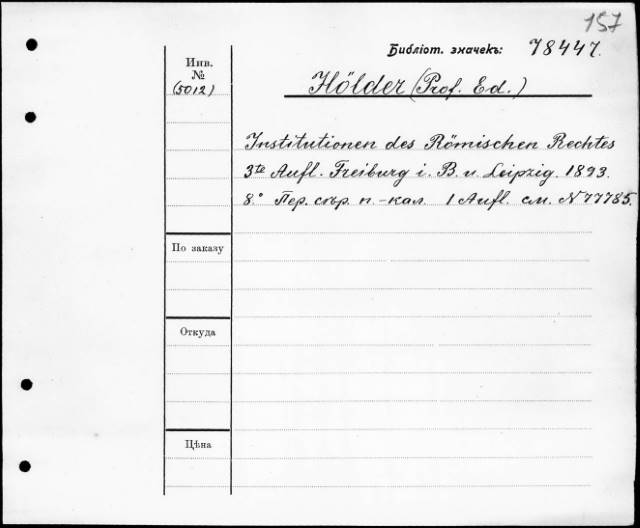 157
Библіот. значекъ: 78447.
Инв.
№
(5012)
Hölder (Prof. Ed.)
Institutionen des Römischen Rechtes
3te Aufl. Freiburg i. B. u. Leipzig. 1893.
8.° Пер. сѣр. п.-кал. 1 Aufl. см. N 77785.
По заказу
Откуда
Цѣна